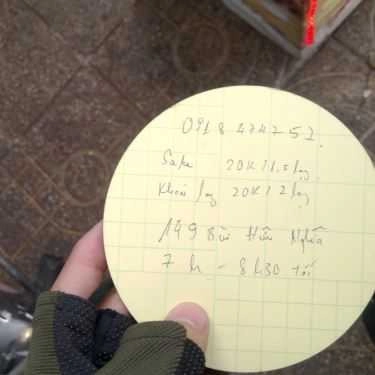 0918 474752.
Sake 20K/1.5 lạng
Khoai lang 20K/2 lạng
149 Bùi Hữu Nghĩa
7h - 8h30 tối